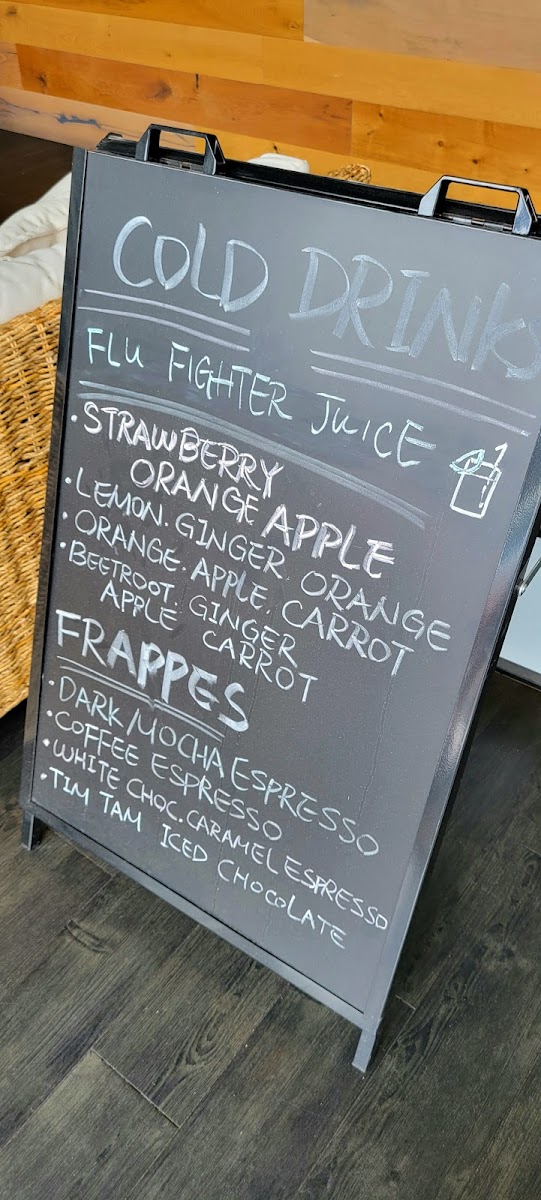 COLD DRINKS
FLU FIGHTER JUICE
• STRAWBERRY
ORANGE APPLE
• LEMON. GINGER ORANGE
• ORANGE. APPLE. CARROT
• BEETROOT. GINGER
APPLE CARROT
FRAPPES
• DARK/MOCHA ESPRESSO
• COFFEE ESPRESSO
• WHITE CHOC. CARAMEL ESPRESSO
• TIM TAM ICED CHOCOLATE